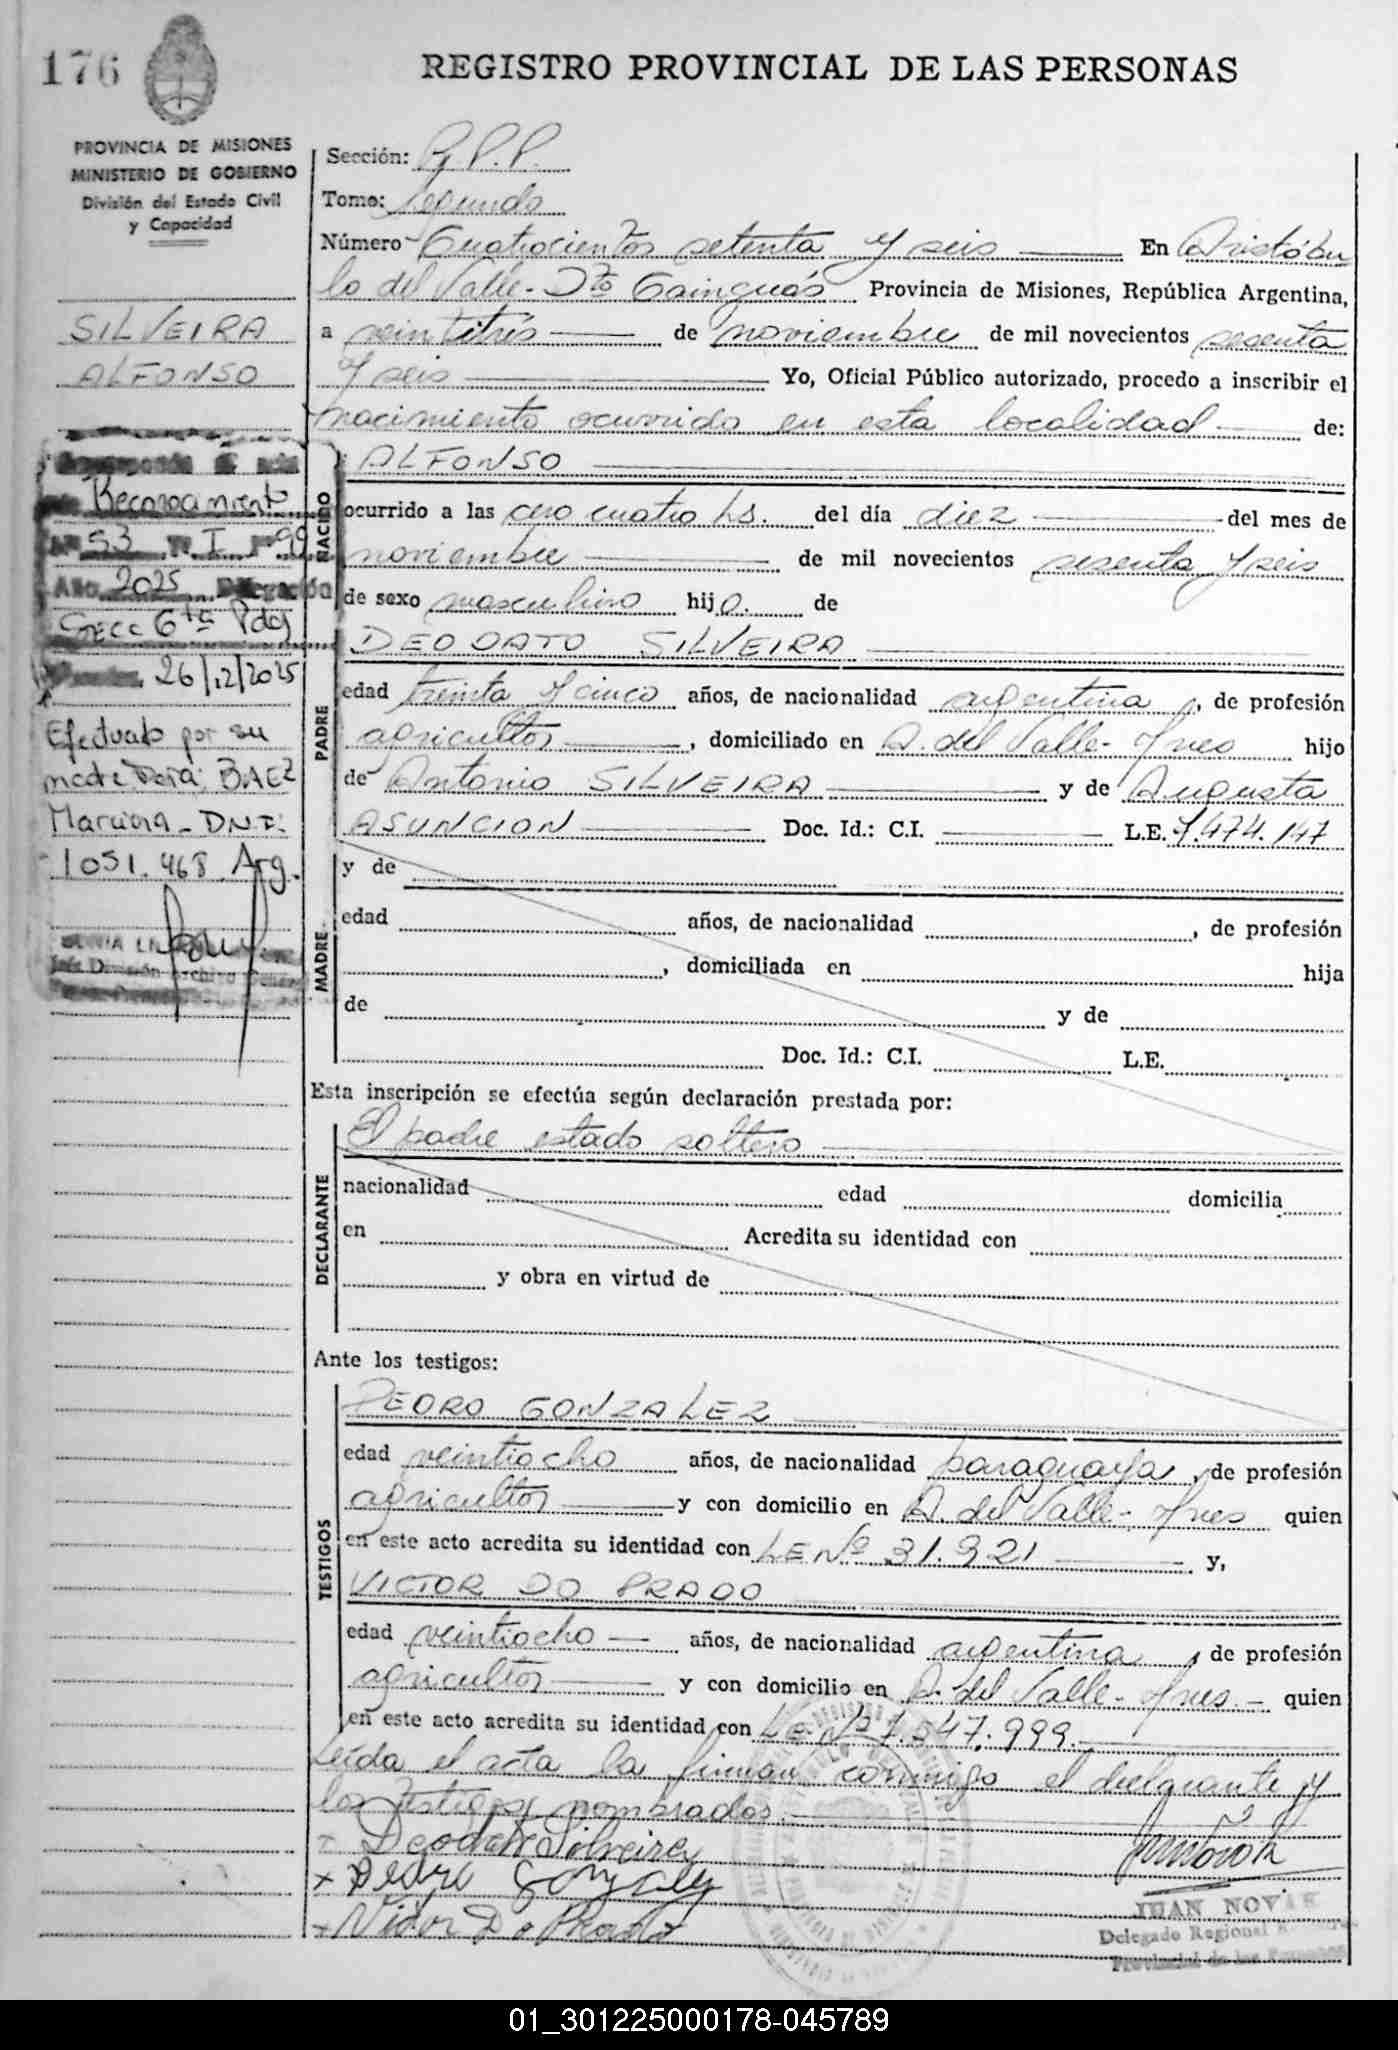 176
REGISTRO PROVINCIAL DE LAS PERSONAS
PROVINCIA DE MISIONES
MINISTERIO DE GOBIERNO
División del Estado Civil
y Capacidad
SILVEIRA
ALFONSO
Reconocimiento
Nº 53 Tº I Fº 99
Año 2025 Delegación
Secc 6ta Pdas
26/12/2025
Efectuado por su
madre Doña: BAEZ
Marciona - DNI:
1051.468 Arg.
Jefe División Archivo General
Sección: R.P.P.
Tomo: Segundo
Número Cuatrocientos setenta y seis En Aristóbu
lo del Valle - Dto Cainguás Provincia de Misiones, República Argentina,
a veintitrés de noviembre de mil novecientos sesenta
y seis Yo, Oficial Público autorizado, procedo a inscribir el
nacimiento ocurrido en esta localidad de:
NACIDO
ALFONSO
ocurrido a las cero cuatro hs. del día diez del mes de
noviembre de mil novecientos sesenta y seis
de sexo masculino hijo. de
DEODATO SILVEIRA
PADRE
edad treinta y cinco años, de nacionalidad argentina, de profesión
agricultor, domiciliado en A. del Valle - Mnes hijo
de Antonio SILVEIRA y de Augusta
ASUNCION Doc. Id.: C.I. L.E. 7.474.147
MADRE
y de
edad años, de nacionalidad , de profesión
, domiciliada en hija
de y de
Doc. Id.: C.I. L.E.
Esta inscripción se efectúa según declaración prestada por:
DECLARANTE
El padre estado soltero
nacionalidad edad domicilia
en Acredita su identidad con
y obra en virtud de
Ante los testigos:
TESTIGOS
PEDRO GONZALEZ
edad veintiocho años, de nacionalidad paraguaya, de profesión
agricultor y con domicilio en A. del Valle - Mnes quien
en este acto acredita su identidad con LE Nº 31.921 y,
VICTOR DO PRADO
edad veintiocho años, de nacionalidad argentina, de profesión
agricultor y con domicilio en A. del Valle - Mnes. - quien
en este acto acredita su identidad con LE. Nº 7.547.999.
Leída el acta la firman conmigo el declarante y
los testigos nombrados.
Deodato Silveira
x Pedro Gonzalez
x Victor Do Prado
JUAN NOVAK
Delegado Regional
Provincial de las Personas
01_301225000178-045789